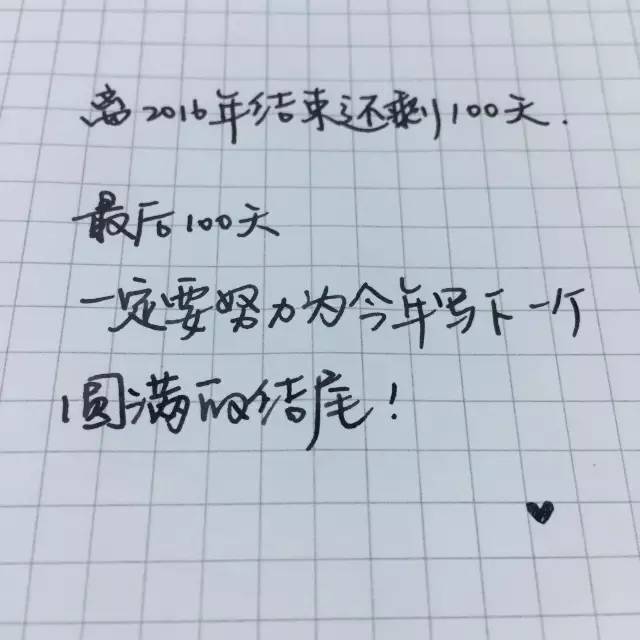 离2016年结束还剩100天.
最后100天
一定要努力为今年写下一个
圆满的结尾!